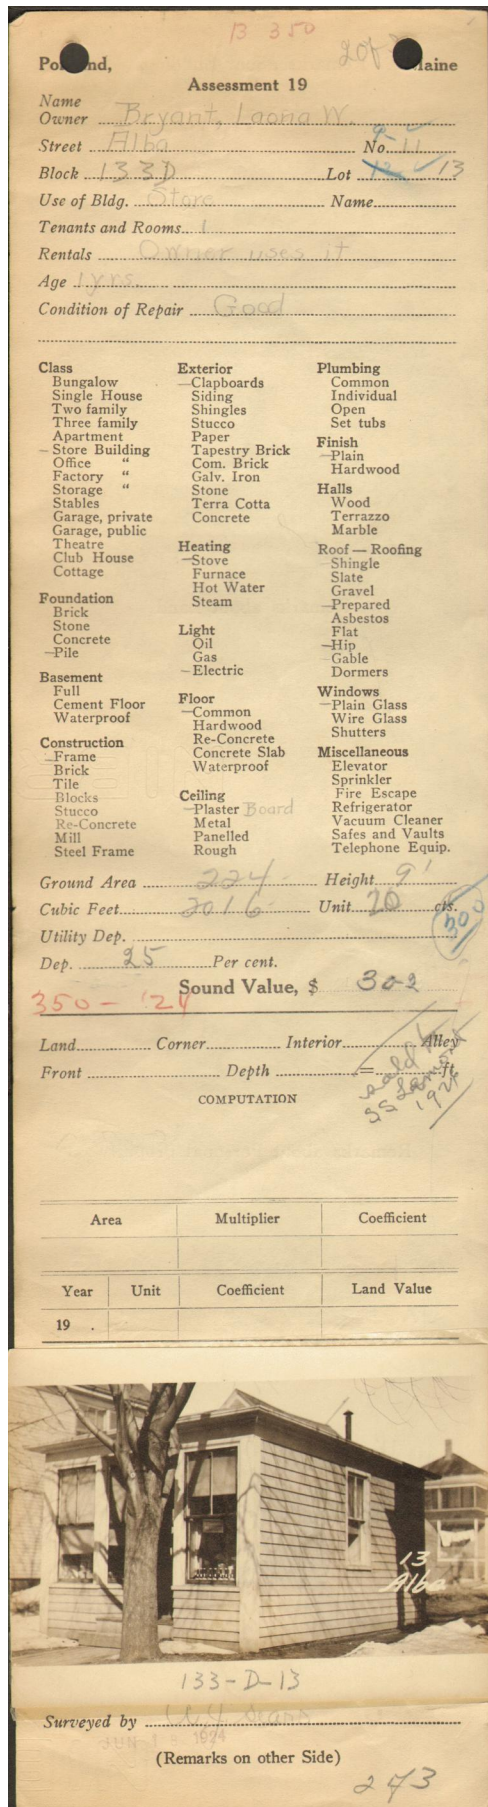 B 350
2 of
Portland, Maine
Assessment 19
Name
Owner Bryant, Laona W.
9-
Street Alba No. 11
Block 133D Lot 12 13
Use of Bldg. Store Name
Tenants and Rooms 1
Rentals Owner uses it
Age 1 yrs.
Condition of Repair Good
Class
Bungalow
Single House
Two family
Three family
Apartment
– Store Building
Office "
Factory "
Storage "
Stables
Garage, private
Garage, public
Theatre
Club House
Cottage
Foundation
Brick
Stone
Concrete
– Pile
Basement
Full
Cement Floor
Waterproof
Construction
– Frame
Brick
Tile
Blocks
Stucco
Re-Concrete
Mill
Steel Frame
Exterior
– Clapboards
Siding
Shingles
Stucco
Paper
Tapestry Brick
Com. Brick
Galv. Iron
Stone
Terra Cotta
Concrete
Heating
– Stove
Furnace
Hot Water
Steam
Light
Oil
Gas
– Electric
Floor
– Common
Hardwood
Re-Concrete
Concrete Slab
Waterproof
Ceiling
– Plaster Board
Metal
Panelled
Rough
Plumbing
Common
Individual
Open
Set tubs
Finish
– Plain
Hardwood
Halls
Wood
Terrazzo
Marble
Roof — Roofing
– Shingle
Slate
Gravel
– Prepared
Asbestos
Flat
– Hip
Gable
Dormers
Windows
– Plain Glass
Wire Glass
Shutters
Miscellaneous
Elevator
Sprinkler
Fire Escape
Refrigerator
Vacuum Cleaner
Safes and Vaults
Telephone Equip.
Ground Area 224 Height 9'
Cubic Feet 2016 Unit 20 cts.
300
Utility Dep.
Dep. 25 Per cent.
Sound Value, $ 302
350 - '24
Land Corner Interior Alley
Front Depth = ft.
sold to
SS Lamont
1924
COMPUTATION
Area Multiplier Coefficient
Year Unit Coefficient Land Value
19 .
13
Alba
133-D-13
Surveyed by
JUN 1 1924
(Remarks on other Side)
273